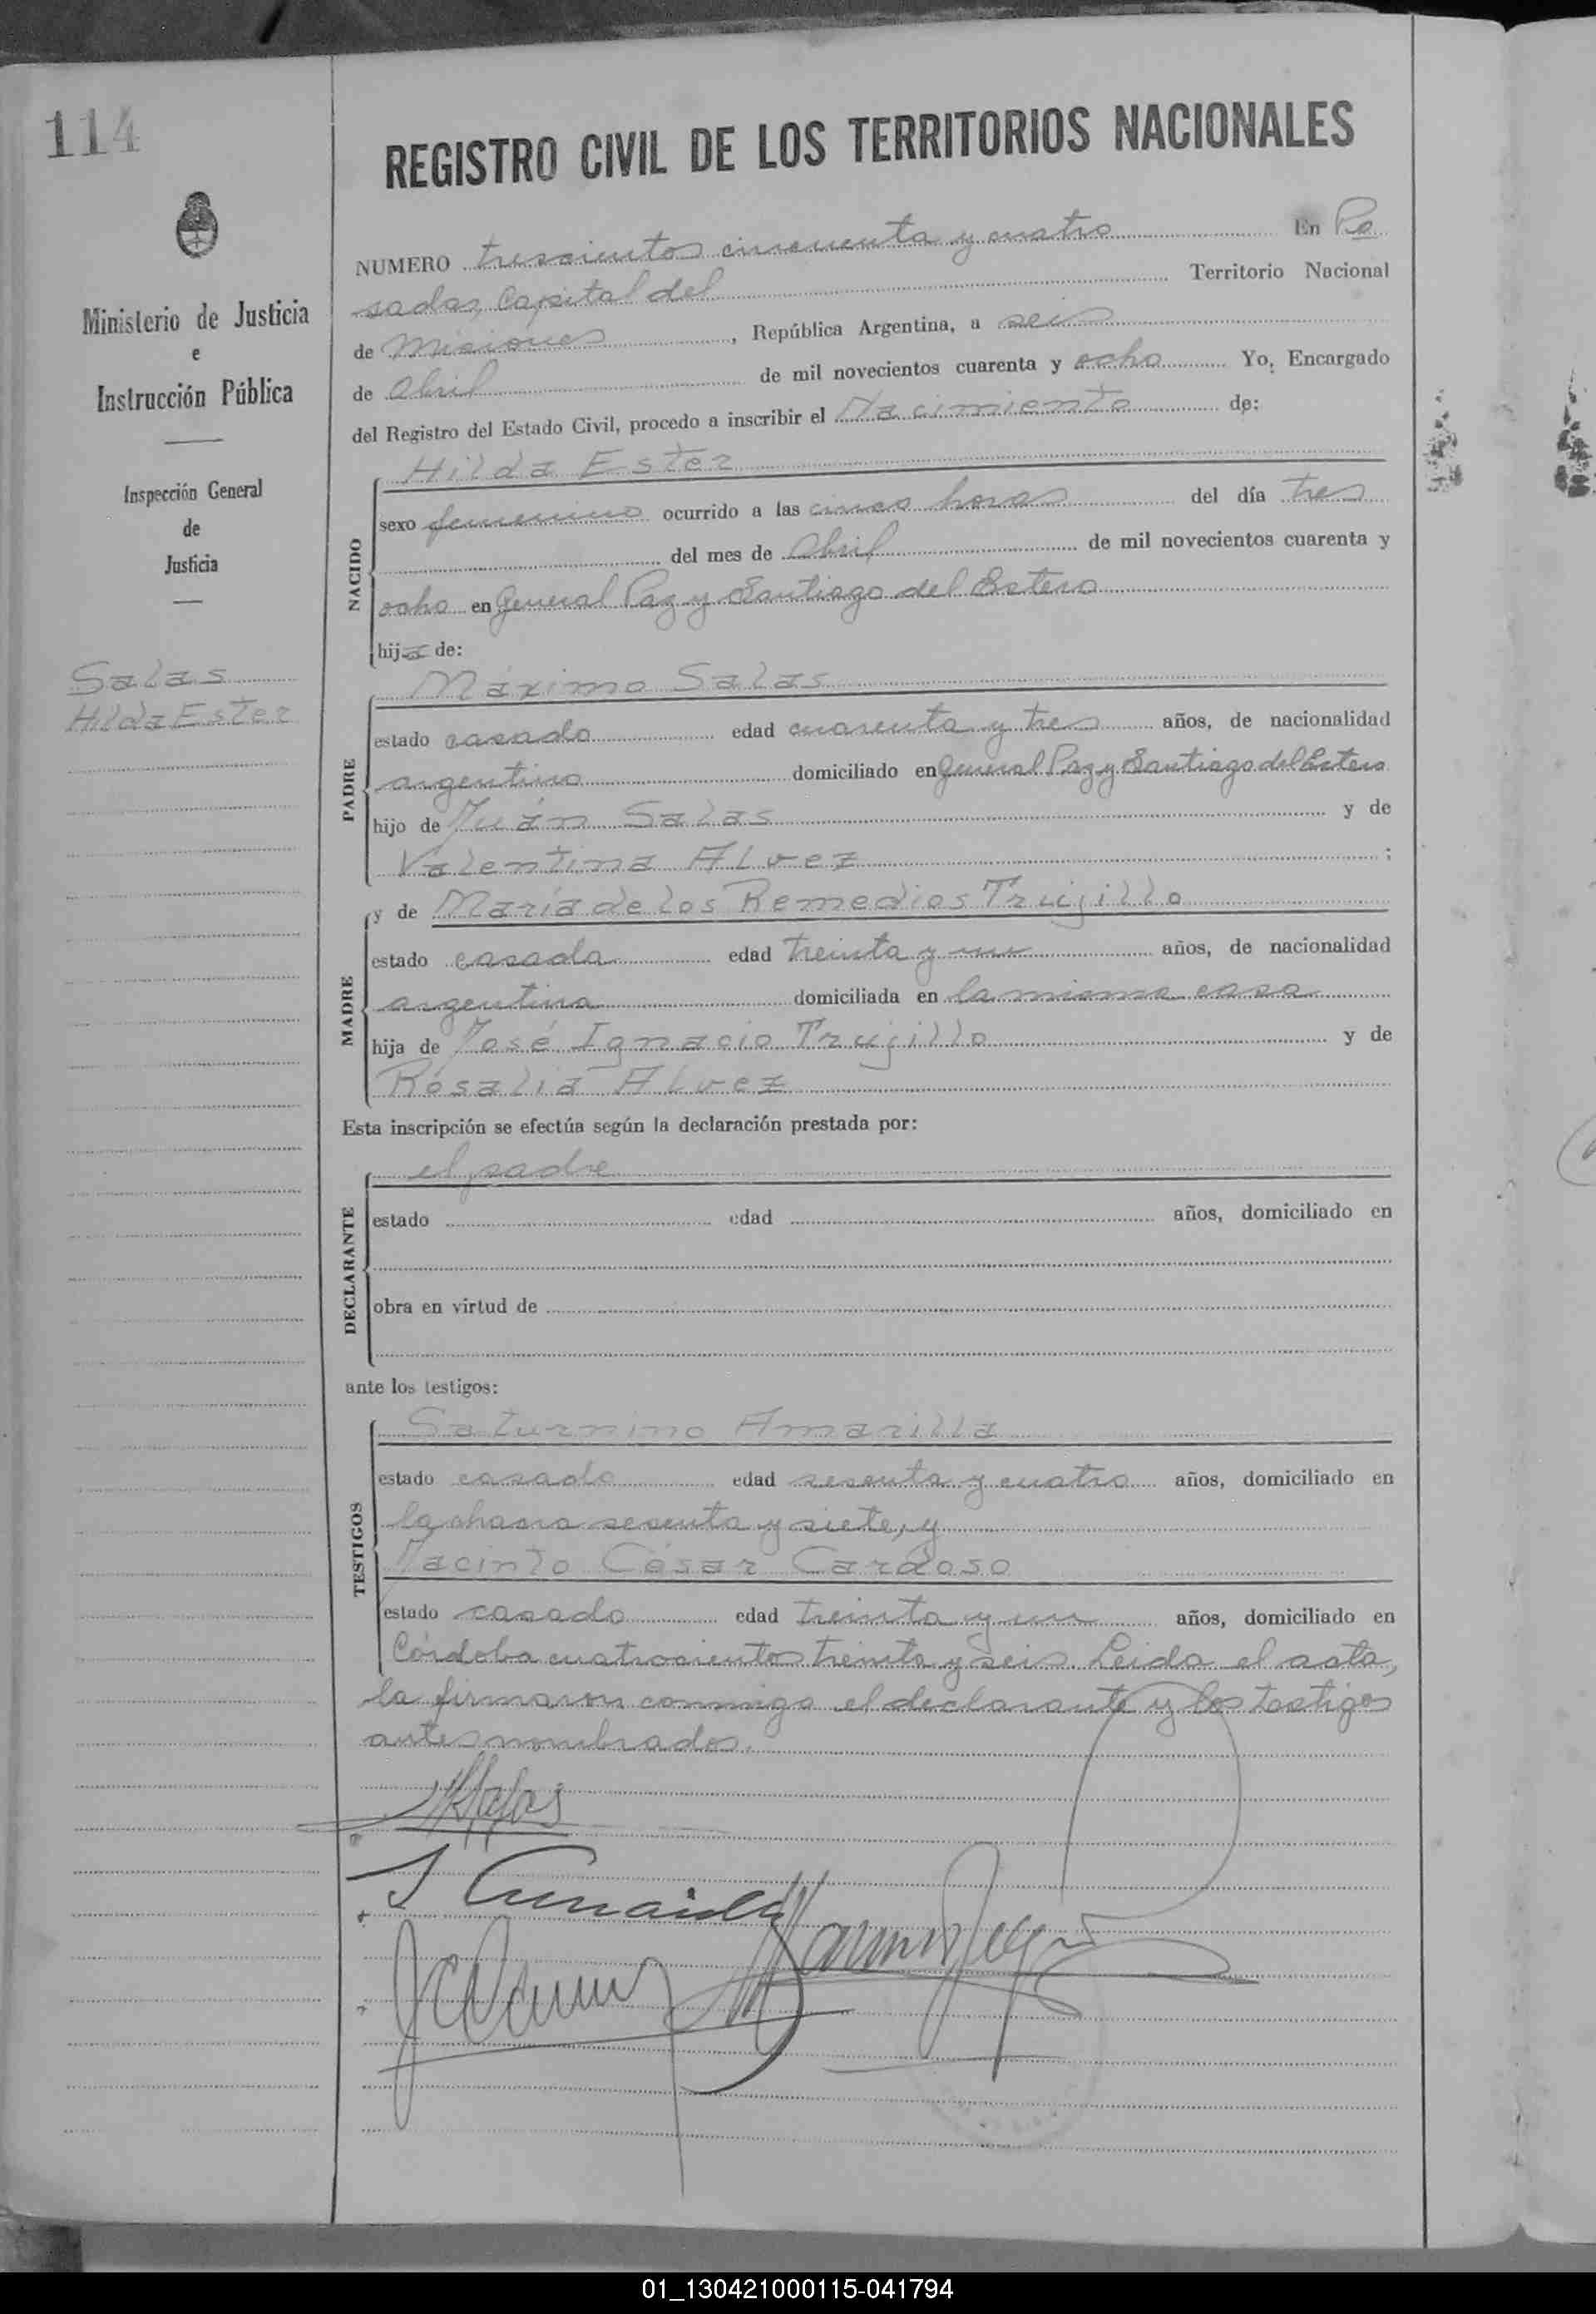 114
Ministerio de Justicia
e
Instrucción Pública
Inspección General
de
Justicia
Salas
Hilda Ester
REGISTRO CIVIL DE LOS TERRITORIOS NACIONALES
NUMERO trescientos cincuenta y cuatro En Po
sadas, Capital del Territorio Nacional
de Misiones, República Argentina, a seis
de Abril de mil novecientos cuarenta y ocho Yo, Encargado
del Registro del Estado Civil, procedo a inscribir el Nacimiento de:
NACIDO
Hilda Ester
sexo femenino ocurrido a las cinco horas del día tres
del mes de Abril de mil novecientos cuarenta y
ocho en General Paz y Santiago del Estero
hija de:
PADRE
Máximo Salas
estado casado edad cuarenta y tres años, de nacionalidad
argentino domiciliado en General Paz y Santiago del Estero
hijo de Juán Salas y de
Valentina Alvez ;
MADRE
y de María de los Remedios Trujillo
estado casada edad treinta y un años, de nacionalidad
argentina domiciliada en la misma casa
hija de José Ignacio Trujillo y de
Rosalía Alvez
Esta inscripción se efectúa según la declaración prestada por:
DECLARANTE
el padre
estado edad años, domiciliado en
obra en virtud de
ante los testigos:
TESTIGOS
Saturnino Amarilla
estado casado edad sesenta y cuatro años, domiciliado en
la chacra sesenta y siete, y
Jacinto César Cardoso
estado casado edad treinta y un años, domiciliado en
Córdoba cuatrocientos treinta y seis. Leida el acta,
la firmaron conmigo el declarante y los testigos
antes nombrados.
01_130421000115-041794